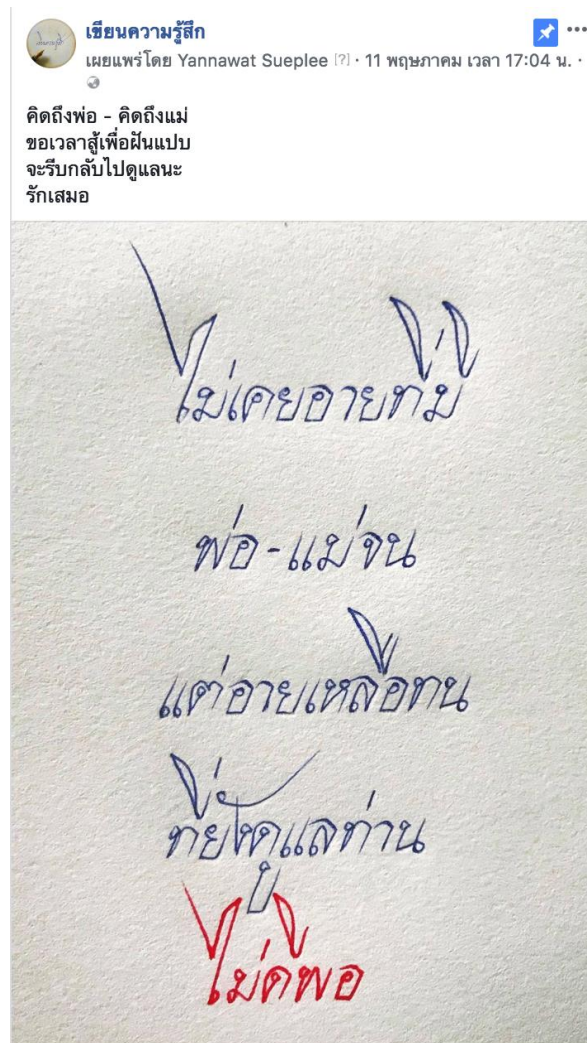 เขียนความรู้สึก
เผยแพร่โดย Yannawat Sueplee [?] · 11 พฤษภาคม เวลา 17:04 น. ·
คิดถึงพ่อ - คิดถึงแม่
ขอเวลาสู้เพื่อฝันแปบ
จะรีบกลับไปดูแลนะ
รักเสมอ
ไม่เคยอายที่มี
พ่อ-แม่จน
แต่อายเหลือทน
ที่ยังดูแลท่าน
ไม่ดีพอ